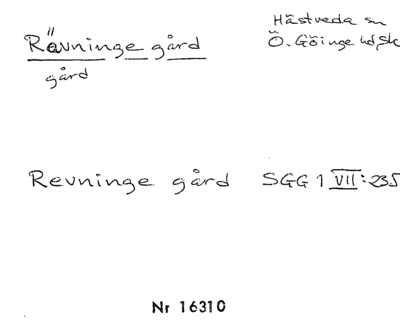 Rävninge gård
gård
Hästveda sn
Ö. Göinge hd, Sk
Revninge gård SGG 1 VII:235
Nr 16310